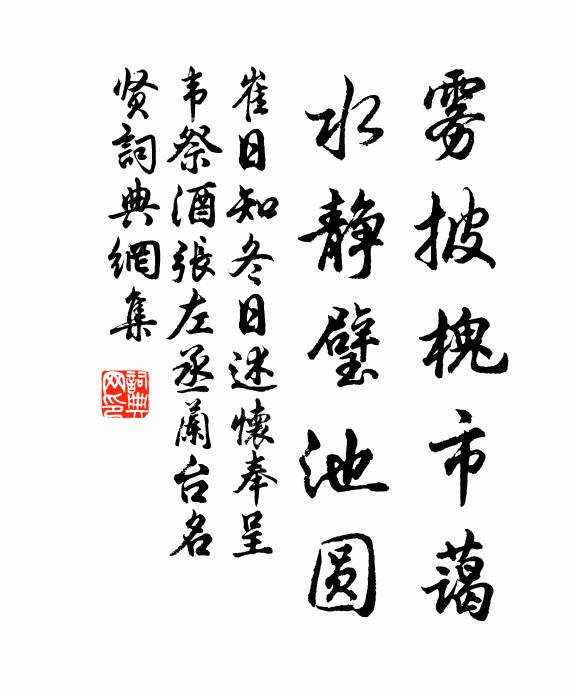 雾披槐市蔼
水静璧池圆
崔日知冬日述懷奉呈
韦祭酒張左丞蘭台名
贤詞典網集
詞典网印